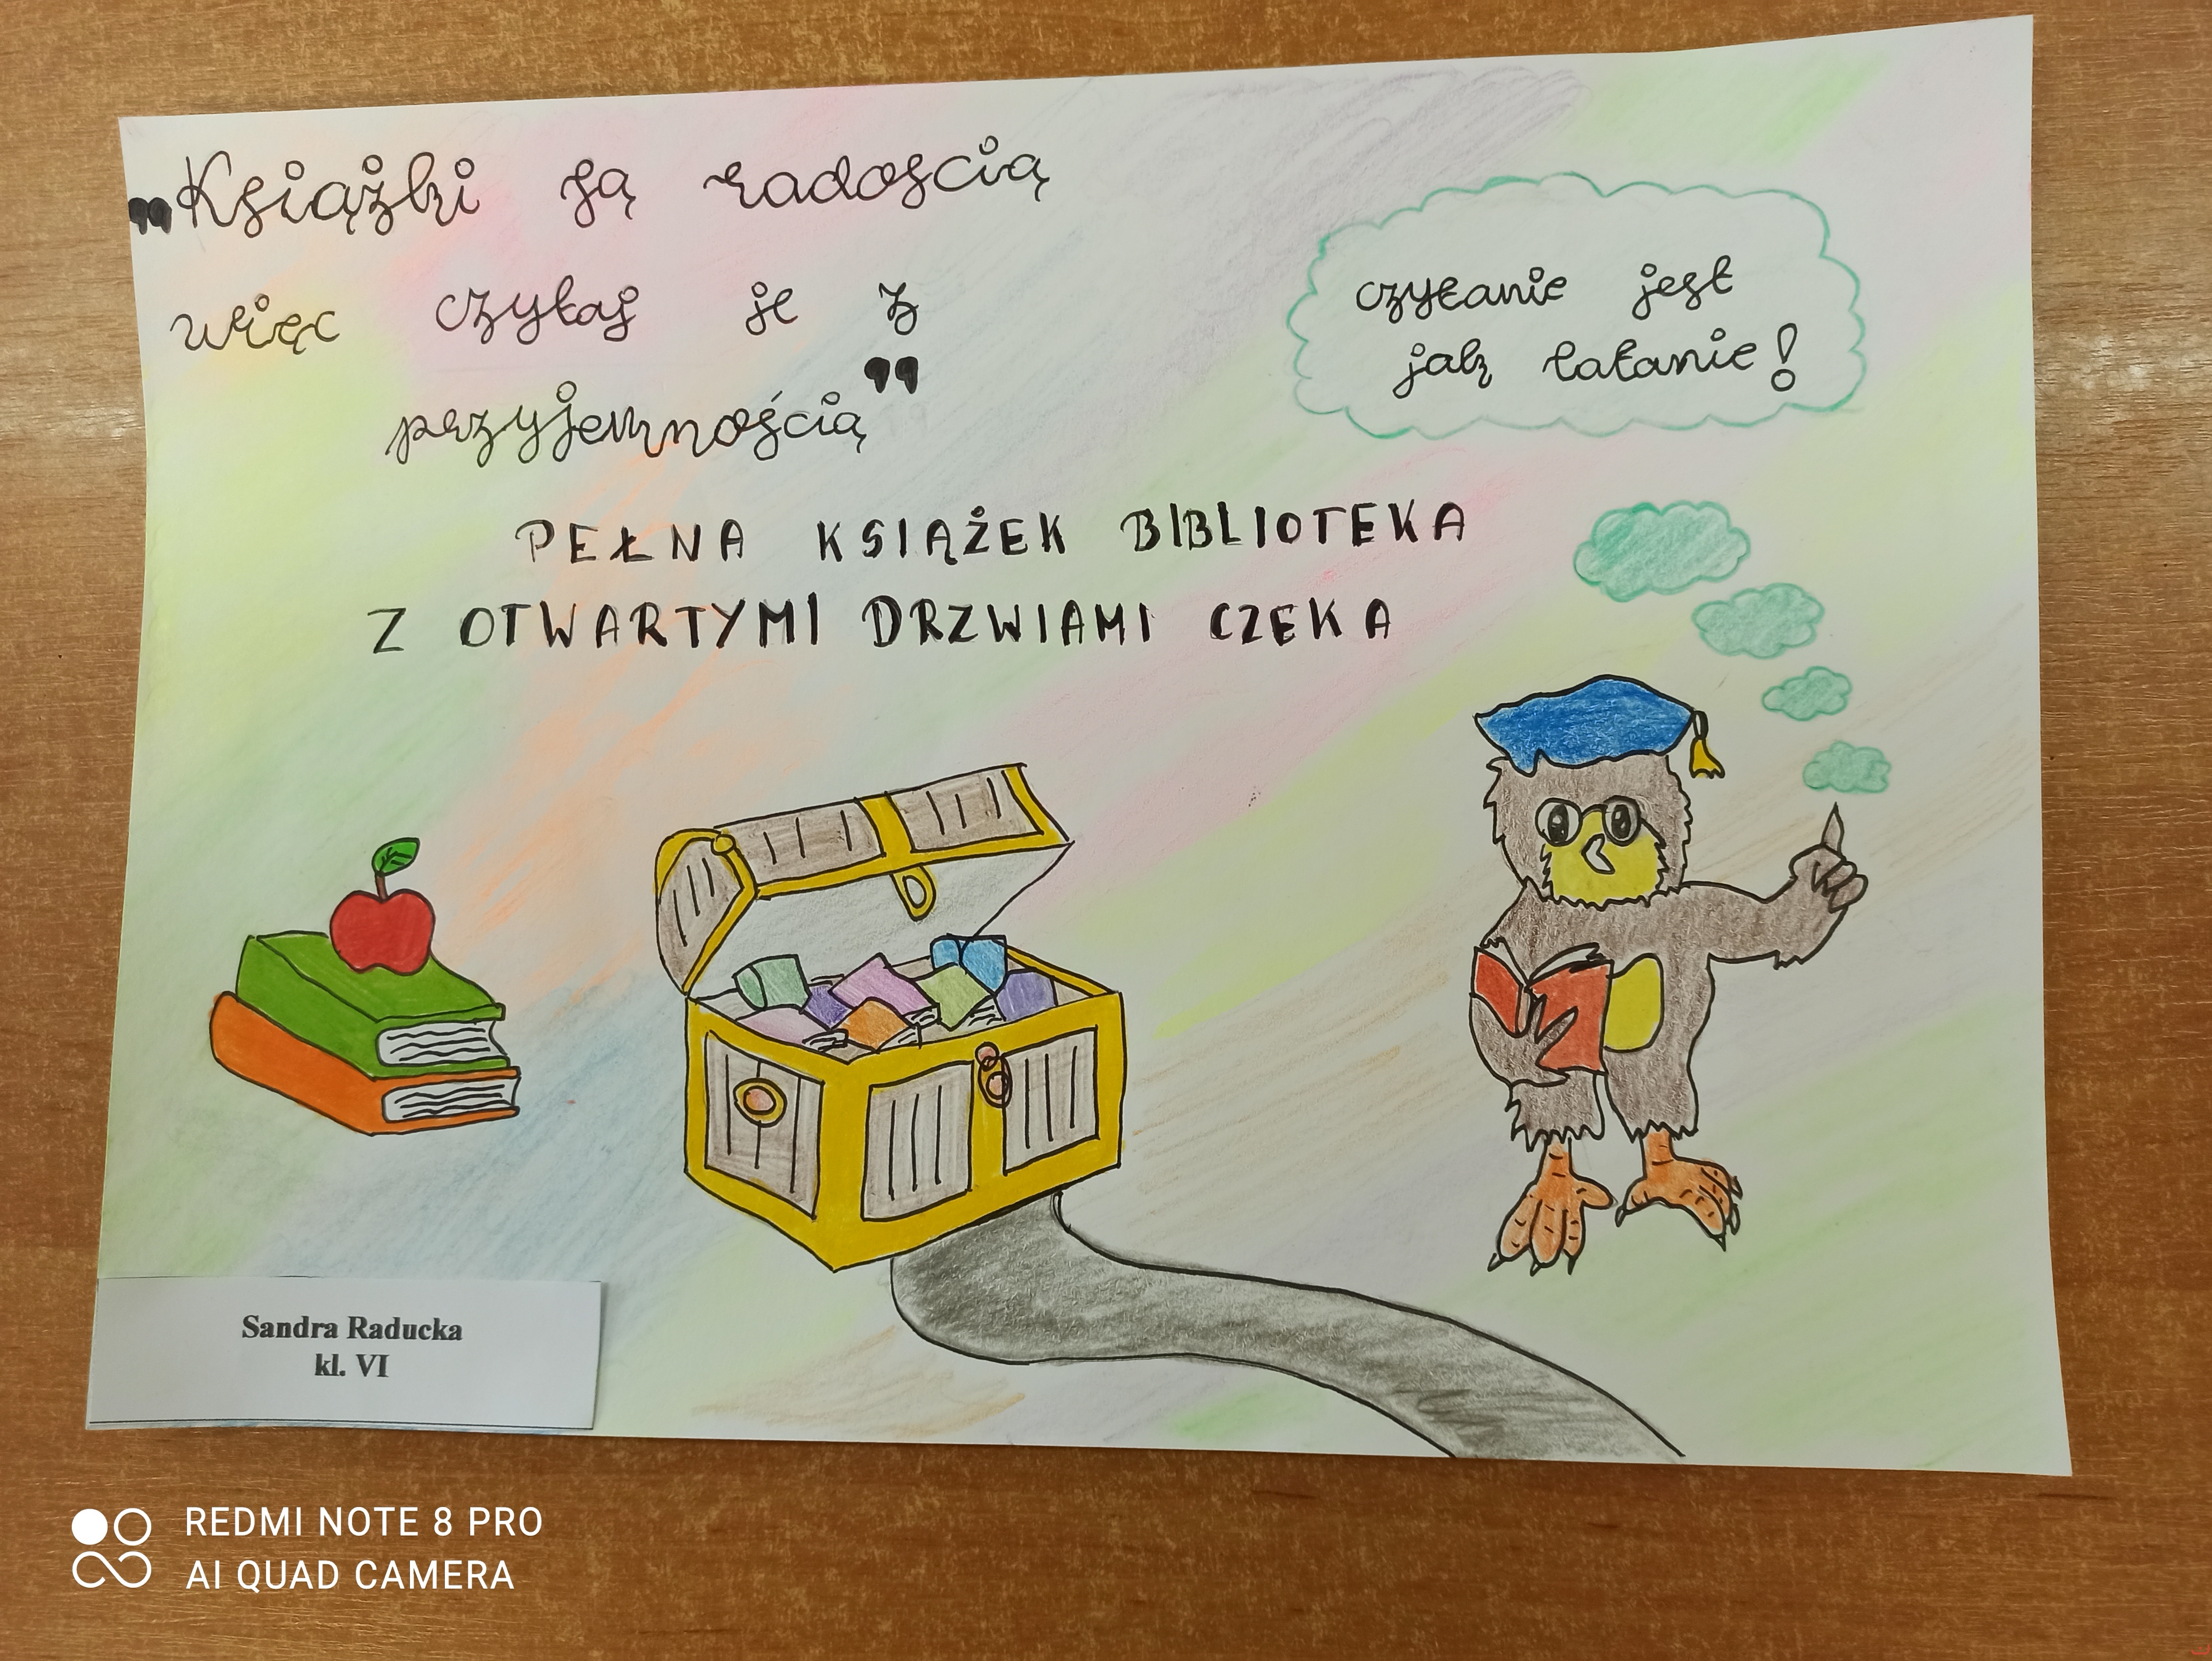 „Książki są radoscią
więc czytaj je z
przyjemnością”
czytanie jest
jak latanie!
PEŁNA KSIĄŻEK BIBLIOTEKA
Z OTWARTYMI DRZWIAMI CZEKA
Sandra Raducka
kl. VI
REDMI NOTE 8 PRO
AI QUAD CAMERA